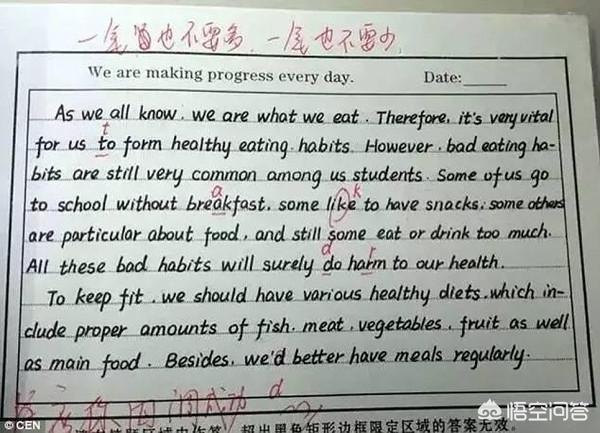 一尾酒也不要多,一尾也不要少
We are making progress every day. Date:
As we all know, we are what we eat. Therefore, it's very vital
t
for us to form healthy eating habits. However, bad eating ha-
bits are still very common among us students. Some of us go
a k
to school without breakfast, some like to have snacks; some others
are particular about food, and still some eat or drink too much.
d r
All these bad habits will surely do harm to our health.
To keep fit, we should have various healthy diets, which in-
clude proper amounts of fish, meat, vegetables, fruit as well
as main food. Besides, we'd better have meals regularly.
成功 d
超出黑色矩形边框限定区域的答案无效。
© CEN
悟空问答